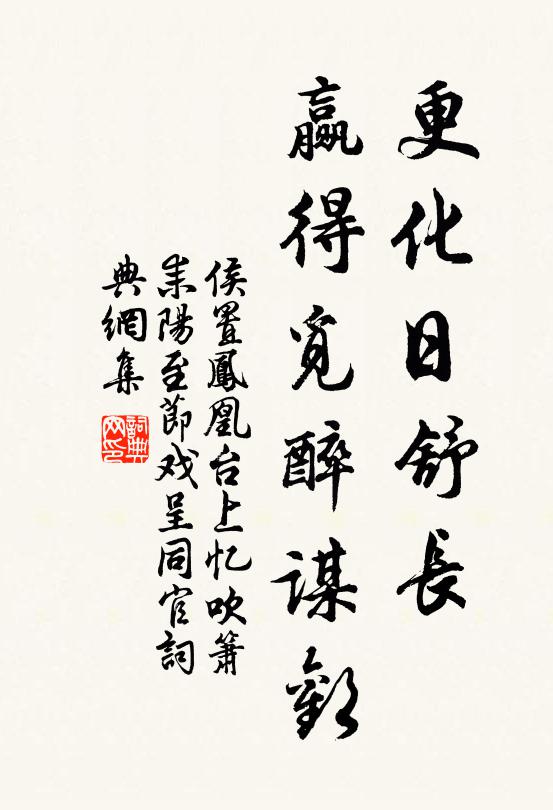 更化日舒長
贏得覓醉謀歡
侯置鳳凰台上忆吹簫
耒陽至節戏呈同官詞
典網集
詞典网印